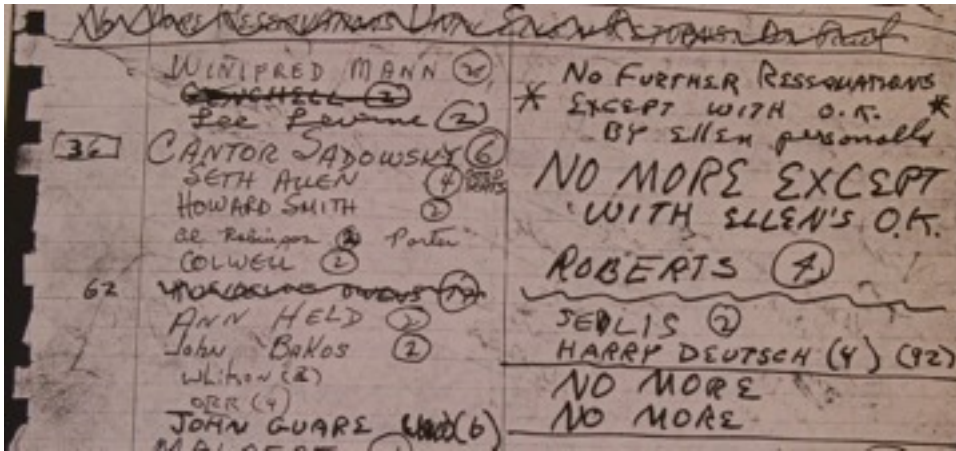 No More Reservations
WINIFRED MANN
Lee Levine (2)
36 CANTOR SADOWSKY (6)
SETH ALLEN (4) SEATS
HOWARD SMITH (2)
Al Robinson Porter
COLWELL (2)
62
ANN HELD (2)
John BAKOS (2)
ORR (4)
JOHN GUARE (6)
* NO FURTHER RESERVATIONS
EXCEPT WITH O.K. *
BY Ellen personally
NO MORE EXCEPT
WITH ELLEN'S O.K.
ROBERTS (4)
SEDLIS (2)
HARRY DEUTSCH (4) (92)
NO MORE
NO MORE